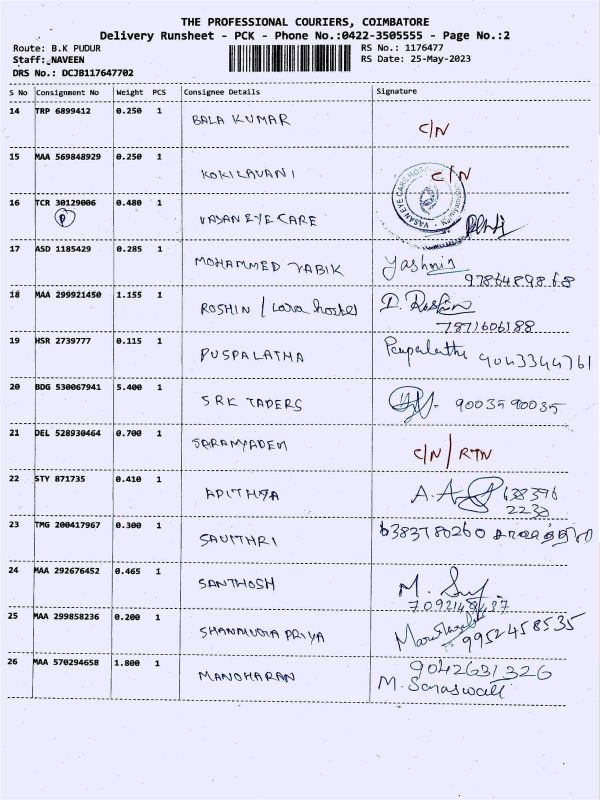 THE PROFESSIONAL COURIERS, COIMBATORE
Delivery Runsheet - PCK - Phone No.:0422-3505555 - Page No.:2
Route: B.K PUDUR RS No.: 1176477
Staff: NAVEEN RS Date: 25-May-2023
DRS No.: DCJB117647702
S No Consignment No Weight PCS Consignee Details Signature
14 TRP 6899412 0.250 1 BALA KUMAR C/N
15 MAA 569848929 0.250 1 KOKILAVANI C/N
16 TCR 30129006 0.480 1 VASAN EYE CARE
P
VASAN EYE CARE HOSPITAL
17 ASD 1185429 0.285 1 MOHAMMED YABIK Yashmin
9786489868
18 MAA 299921450 1.155 1 ROSHIN / Lava hostel D. Roshin
7871606188
19 HSR 2739777 0.115 1 PUSPALATHA 9043344761
20 BDG 530067941 5.400 1 SRK TADERS 9003590035
21 DEL 528930464 0.700 1 SARANYADEVI C/N / RTN
22 STY 871735 0.410 1 ADITHYA A.A
638376
2230
23 TMG 200417967 0.300 1 SAVITHRI 6383780260
24 MAA 292676452 0.465 1 SANTHOSH M.
25 MAA 299858236 0.200 1 SHANMUGA PRIYA 9952458535
26 MAA 570294658 1.800 1 MANOHARAN 9042631326
M. Saraswati